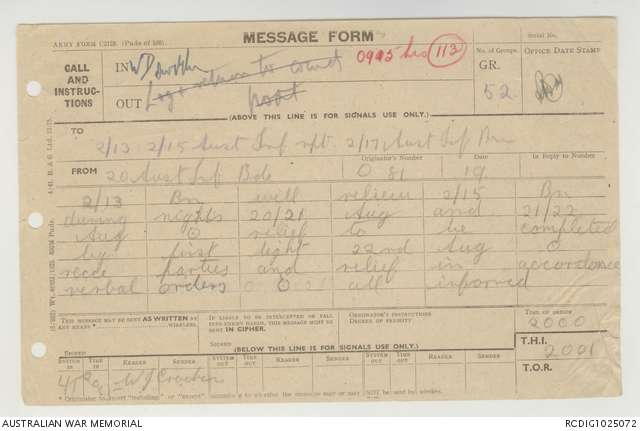 MESSAGE FORM
ARMY FORM C2128. (Pads of 100).
Serial No.
CALL AND INSTRUCTIONS
IN
0905 hrs 113
No. of Groups.
GR.
52
OFFICE DATE STAMP
OUT
(ABOVE THIS LINE IS FOR SIGNALS USE ONLY.)
TO
2/13 2/15 Aust Inf rpt. 2/17 Aust Inf Bn
FROM
20 Aust Inf Bde
Originator's Number
O 81
Date
19
In Reply to Number
2/13 Bn will relieve 2/15 Bn
during nights 20/21 Aug and 21/22
Aug O relief to be completed
by first light 22nd Aug O
recce parties and relief in accordance
verbal orders all informed
THIS MESSAGE MAY BE SENT AS WRITTEN BY ANY MEANS
WIRELESS.
IF LIABLE TO BE INTERCEPTED OR FALL INTO ENEMY HANDS, THIS MESSAGE MUST BE SENT IN CIPHER.
ORIGINATOR'S INSTRUCTIONS
DEGREE OF PRIORITY
TIME OF ORIGIN
2000
SIGNED
SIGNED
(BELOW THIS LINE IS FOR SIGNALS USE ONLY.)
T.H.I.
2001
SYSTEM IN
TIME IN
READER
SENDER
SYSTEM OUT
TIME OUT
READER
SENDER
SYSTEM OUT
TIME OUT
READER
SENDER
T.O.R.
AUSTRALIAN WAR MEMORIAL
RCDIG1025072